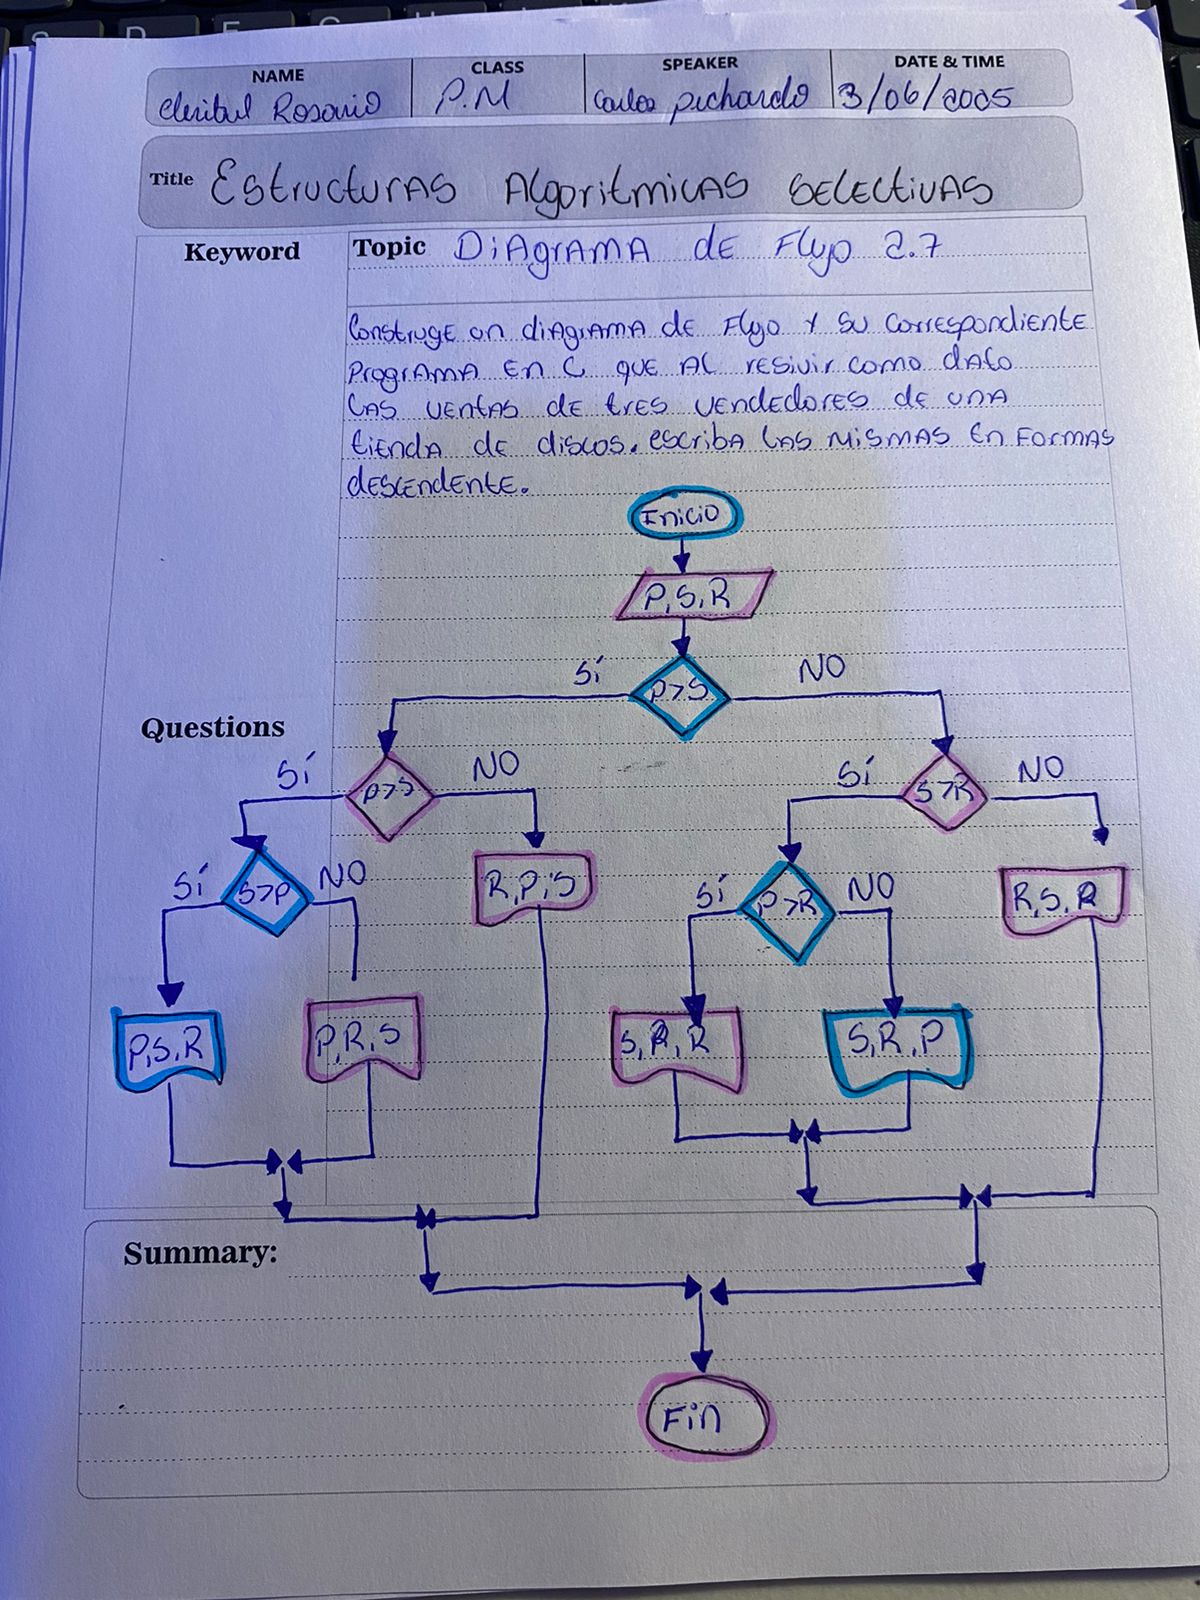 NAME CLASS SPEAKER DATE & TIME
Rosario P.M Carlos pichardo 3/06/2005
Title Estructuras Algoritmicas selectivas
Keyword
Topic DiAgrAMA de Flujo 2.7
Construye un diAgrAMA de Flujo y su correspondiente
ProgrAMA en C que AL resivir como dato
LAS ventas de tres vendedores de una
tienda de discos. escriba LAS mismas en Formas
descendente.
Inicio
P,S,R
P>S
Sí NO
Questions
P>S
Sí NO
S>R
Sí NO
S>P
Sí NO
R,P,S
P>R
Sí NO
R,S,P
P,S,R
P,R,S
S,P,R
S,R,P
Summary:
Fin